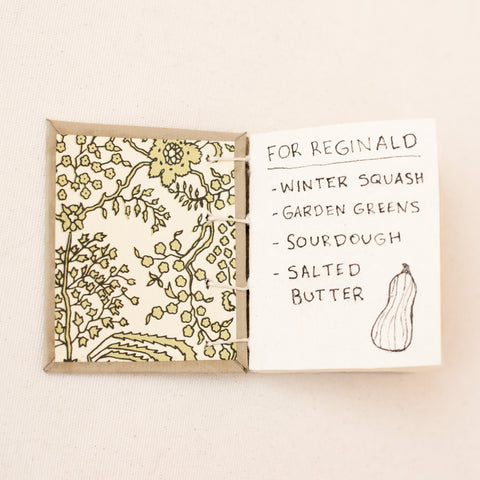 FOR REGINALD
- WINTER SQUASH
- GARDEN GREENS
- SOURDOUGH
- SALTED
BUTTER